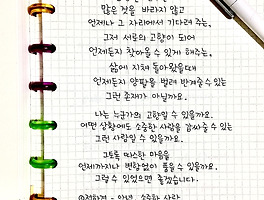 많은 것을 바라지 않고
언제나 그 자리에서 기다려 주는,
그저 서로의 고향이 되어
언제든지 찾아올 수 있게 해주는,
삶에 지쳐 돌아왔을때
언제든지 양팔을 벌려 반겨줄 수 있는
그런 존재가 아닐까요.
나는 누군가의 고향일 수 있을까요.
어떤 상황에도 소중한 사람을 감싸줄 수 있는
그런 사람일 수 있을까요.
그토록 따스한 마음을
언제까지나 변함없이 품을 수 있을까요.
그럴 수 있었으면 좋겠습니다.
소중한 사람